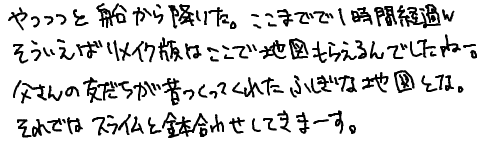 やっっっと船から降りた。ここまでで1時間経過w
そういえばリメイク版はここで地図もらえるんでしたねー。
父さんの友だちが昔つくってくれたふしぎな地図とな。
それではスライムと鉢合わせしてきまーす。